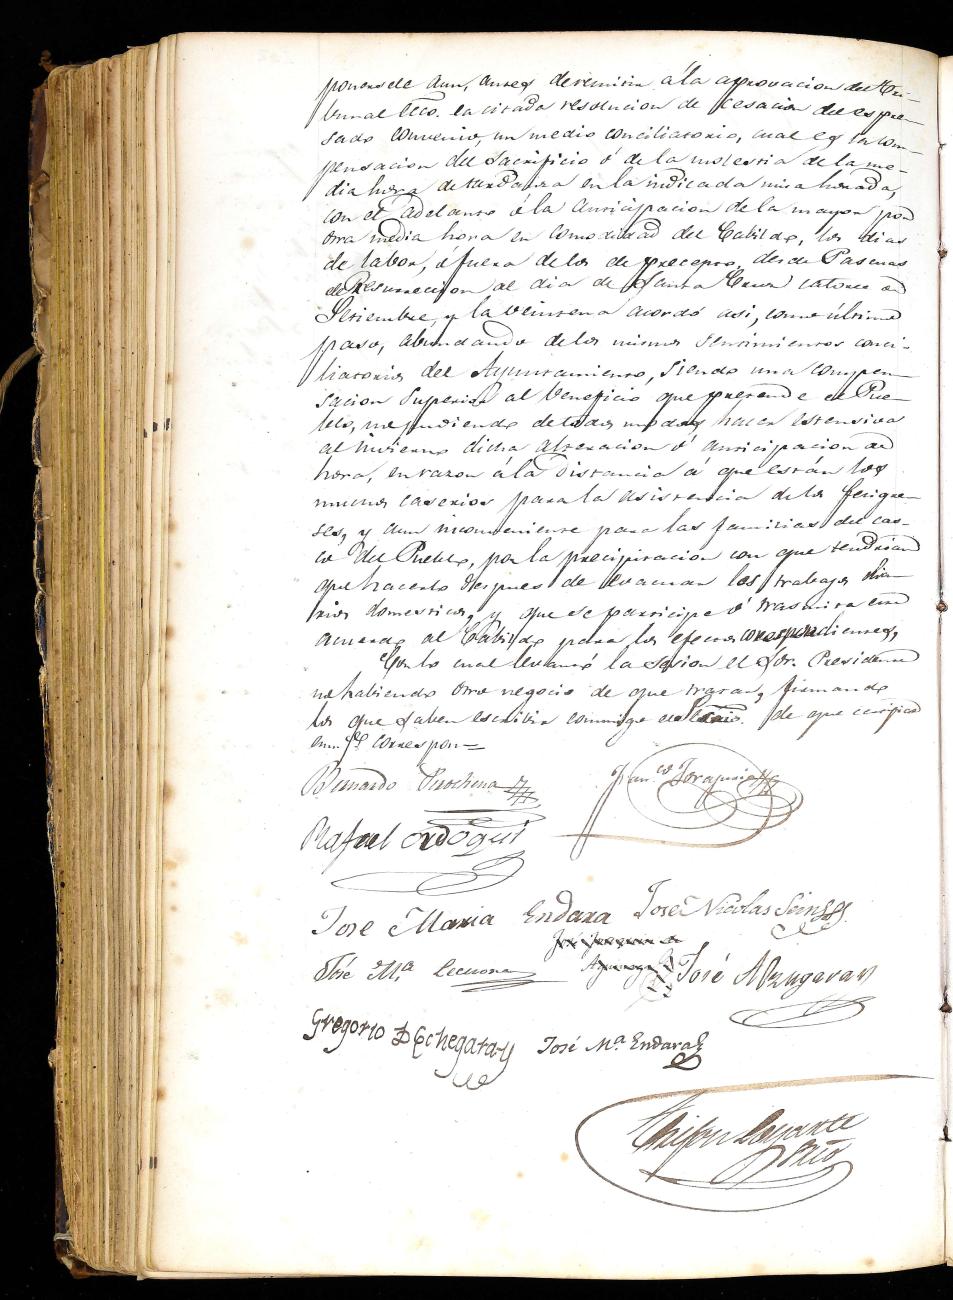 ponerse aun, antes de remitir á la aprovacion del Tri-
bunal Ecco. la citada resolucion de cesacion del espre-
sado convenio, un medio conciliatorio, cual es en com-
pensacion del sacrificio ó de la molestia de la me-
dia hora de tardanza en la indicada misa honrada,
con el adelanto ó la anticipacion de la mayor por
otra media hora en comodidad del Cabildo, los dias
de labor, ó fuera de los de precepto, desde Pascuas
de Resurreccion al dia de Santa Cruz catorce de
Setiembre, y la veintena acordó asi, como último
paso, abundando de los mismos sentimientos conci-
liatorios del Ayuntamiento, siendo una compen-
sacion superior al beneficio que pretende el Pue-
blo, no pudiendo de todos modos hacer estensiva
al invierno dicha alteracion ó anticipacion de
hora, en razon á la distancia á que están los
muchos caserios para la asistencia de los feligre-
ses, y aun inconveniente para las familias del cas-
co del Pueblo, por la precipitacion con que tendrian
que hacerlo despues de evacuar los trabajos dia-
rios domesticos, y que se participe ó trasmita este
acuerdo al Cabildo para los efectos correspondientes,
Con lo cual levantó la sesion el Sor. Presidente
no habiendo otro negocio de que tratar, firmando
los que saben escribir conmigo el Srio. de que certifico
correspon=
Bernardo Perochena Fran.co
Rafael Ordoqui
Jose Maria Endara José Nicolas
José Ma. Lecuona José
Gregorio D Echegaray José Ma. Endara
Srio